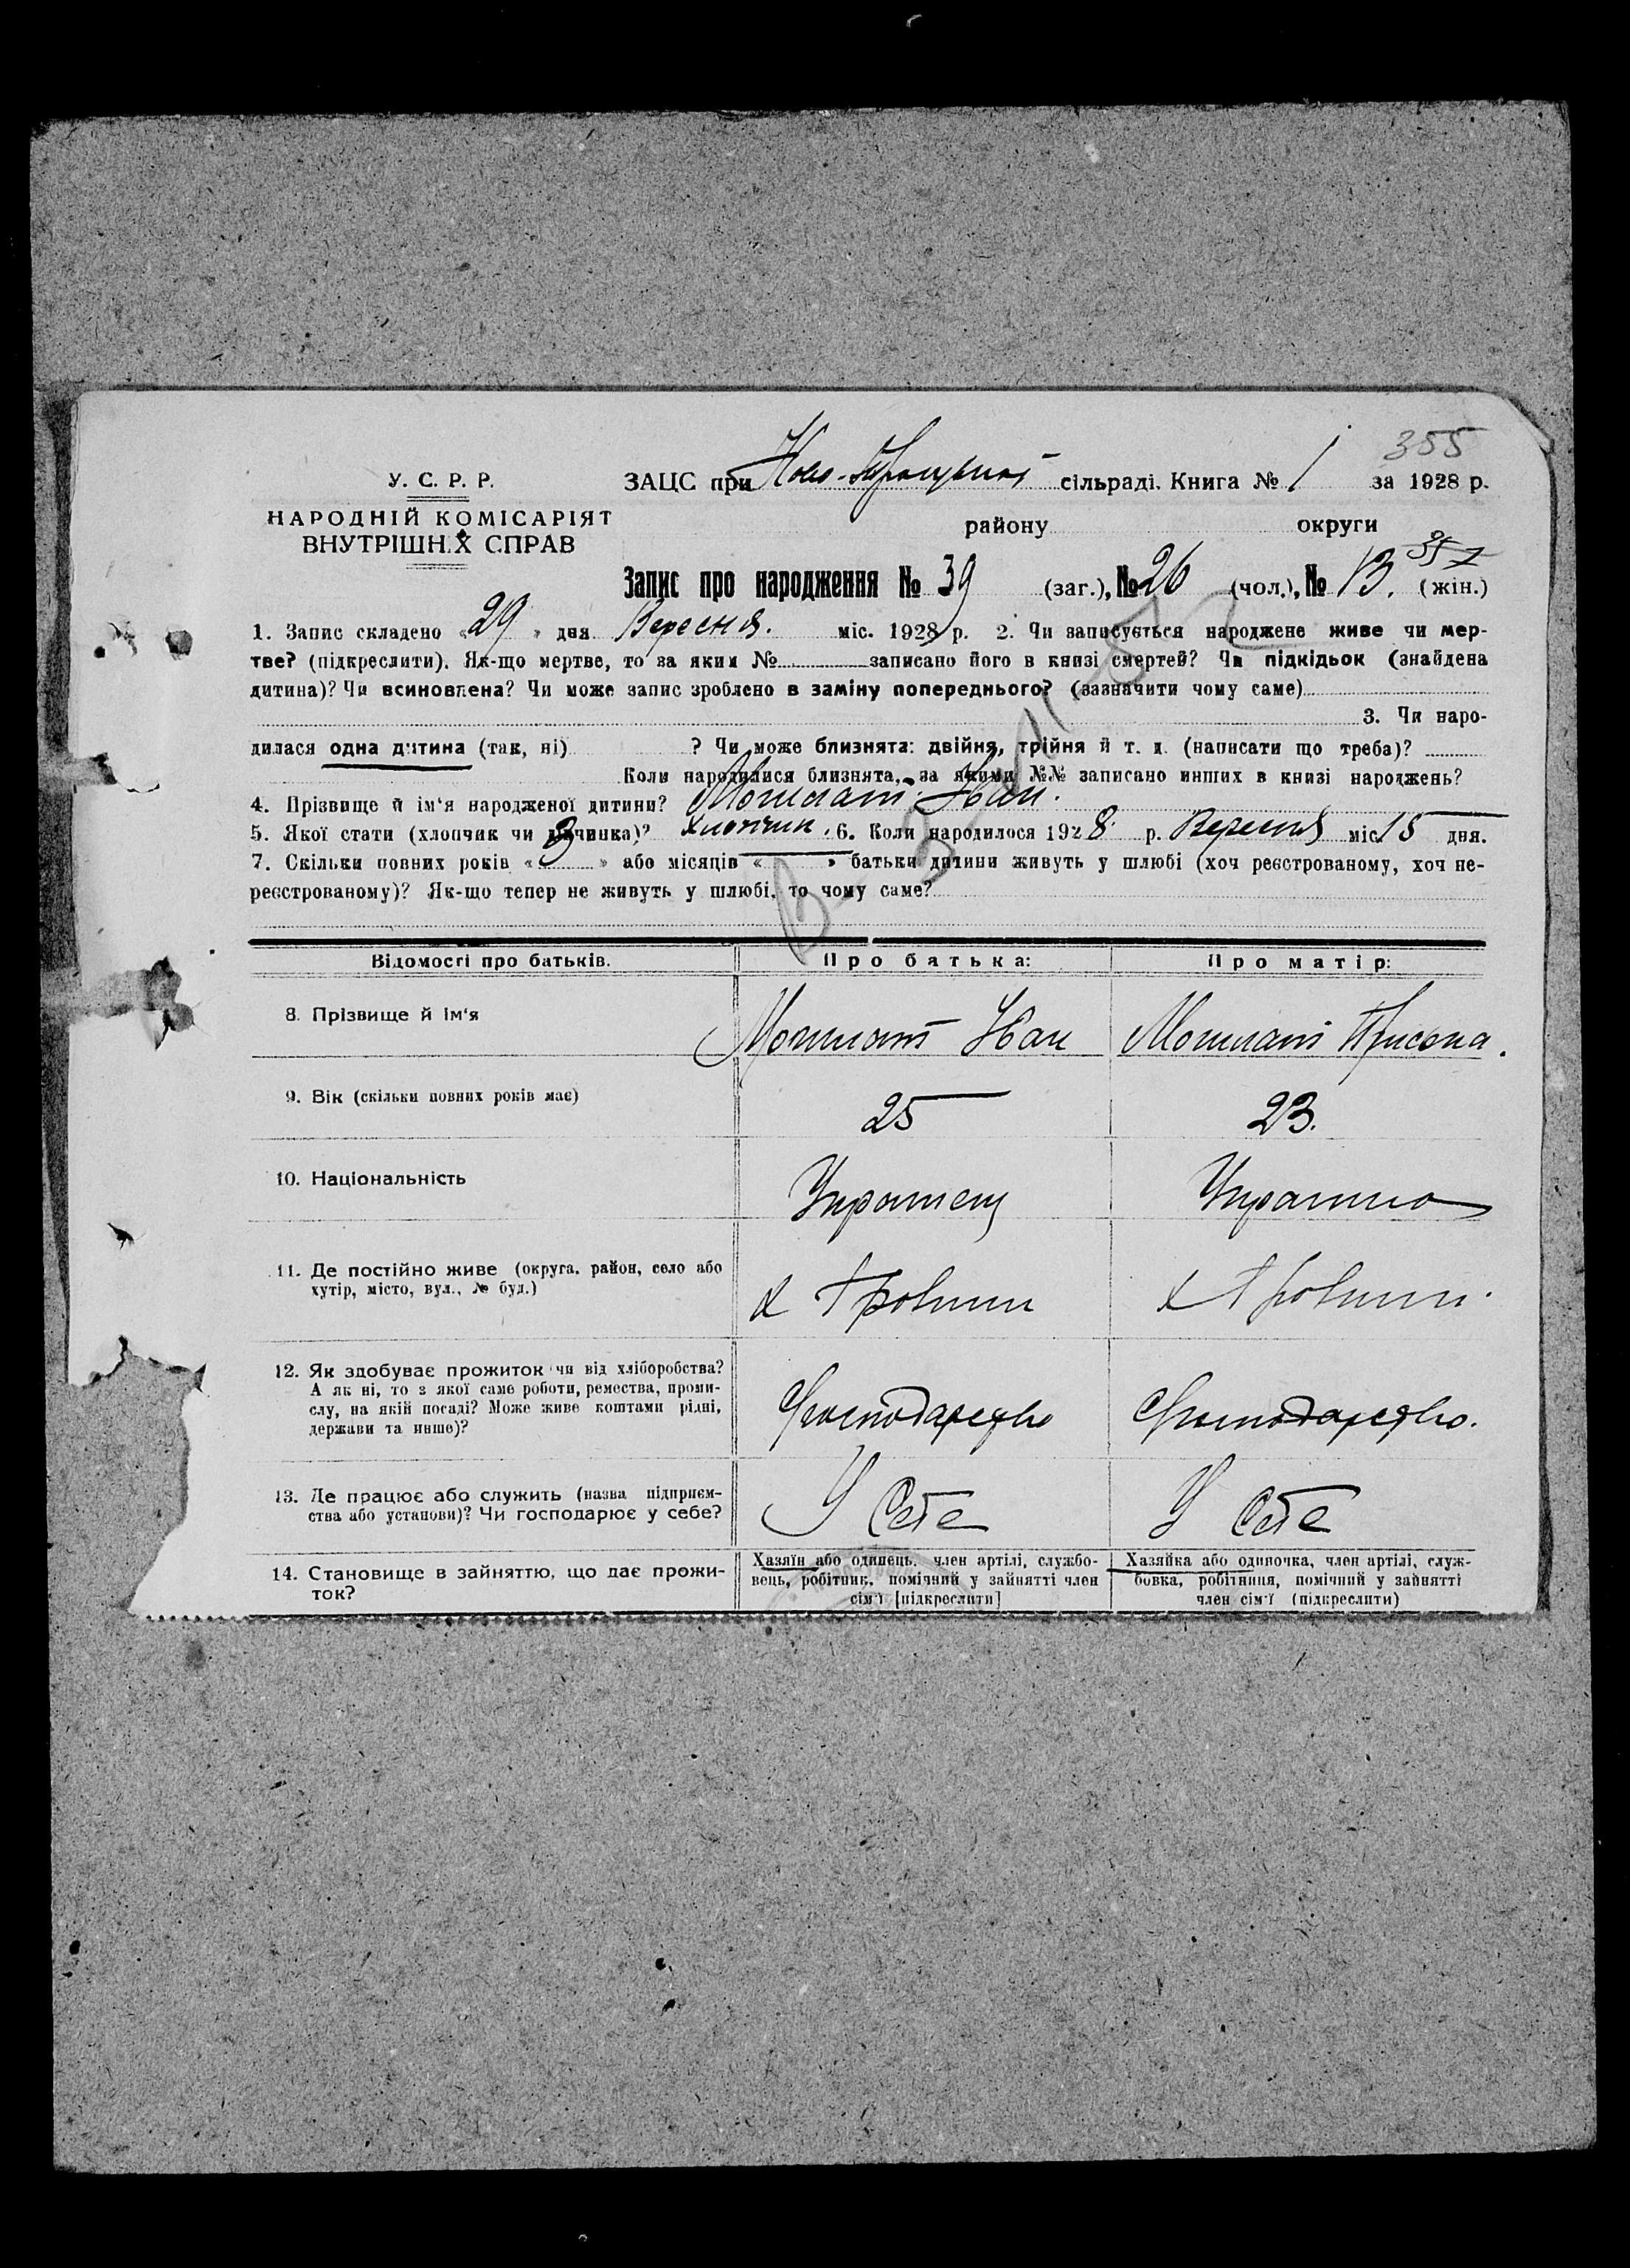 355
У. С. Р. Р.
НАРОДНІЙ КОМІСАРІЯТ
ВНУТРІШН.Х СПРАВ
ЗАЦС при Ново- сільраді. Книга № 1 за 1928 р.
району округи
Запис про народження № 39 (заг.), № 26 (чол.), № 13. (жін.)
1. Запис складено « 29 » дня Вересня. міс. 1928 р. 2. Чи записується народжене живе чи мер-
тве? (підкреслити). Як-що мертве, то за яким № записано його в книзі смертей? Чи підкідьок (знайдена
дитина)? Чи всиновлена? Чи може запис зроблено в заміну попереднього? (зазначити чому саме)
3. Чи наро-
дилася одна дитина (так, ні) ? Чи може близнята: двійня, трійня й т. д. (написати що треба)?
Коли народилися близнята, за якими №№ записано инших в книзі народжень?
4. Прізвище й ім‘я народженої дитини? Іван.
5. Якої стати (хлопчик чи дівчинка)? хлопчик. 6. Коли народилося 1928 р. Вересня міс 15 дня.
7. Скільки повних років « 3 » або місяців « » батьки дитини живуть у шлюбі (хоч реєстрованому, хоч не-
реєстрованому)? Як-що тепер не живуть у шлюбі, то чому саме?
Відомості про батьків. Про батька: Про матір:
8. Прізвище й ім‘я Іван
9. Вік (скільки повних років має) 25 23.
10. Національність
11. Де постійно живе (округа, район, село або
хутір, місто, вул., № буд.)
12. Як здобуває прожиток чи від хліборобства?
А як ні, то з якої саме роботи, ремества, проми-
слу, на якій посаді? Може живе коштами рідні,
держави та инше)?
Господарство Господарство.
13. Де працює або служить (назва підприєм-
ства або установи)? Чи господарює у себе?
У себе У себе
14. Становище в зайняттю, що дає прожи-
ток?
Хазяїн або одинець, член артілі, службо-
вець, робітник, помічний у зайнятті член
сім‘ї [підкреслити]
Хазяйка або одиночка, член артілі, служ-
бовка, робітниця, помічний у зайнятті
член сім‘ї (підкреслити)